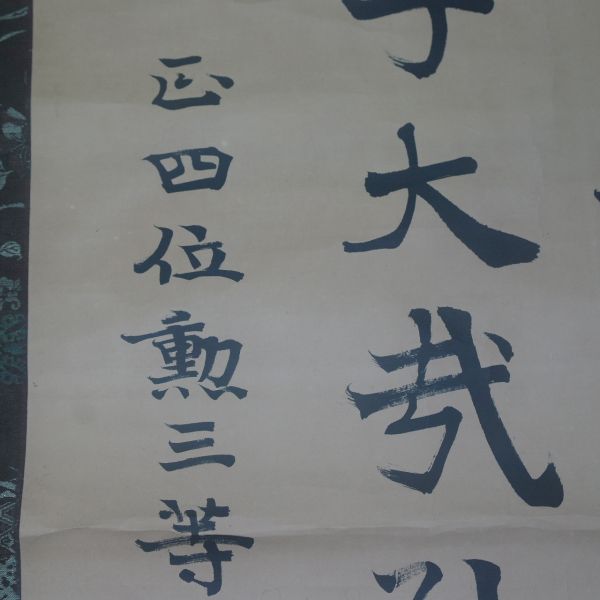 大哉
正四位勲三等